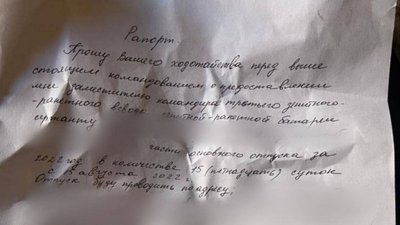 Рапорт.
Прошу Вашего ходотайства перед выше
стоящим командованием о предоставлении
мне заместителю командира третьего зенитно-
-ракетного взвода зенитной-ракетной батареи
сержанту
части основного отпуска за
2022 год в количестве 15 (пятнадцать) суток
с 15 августа 2022 г.
Отпуск буду проводить по адресу: